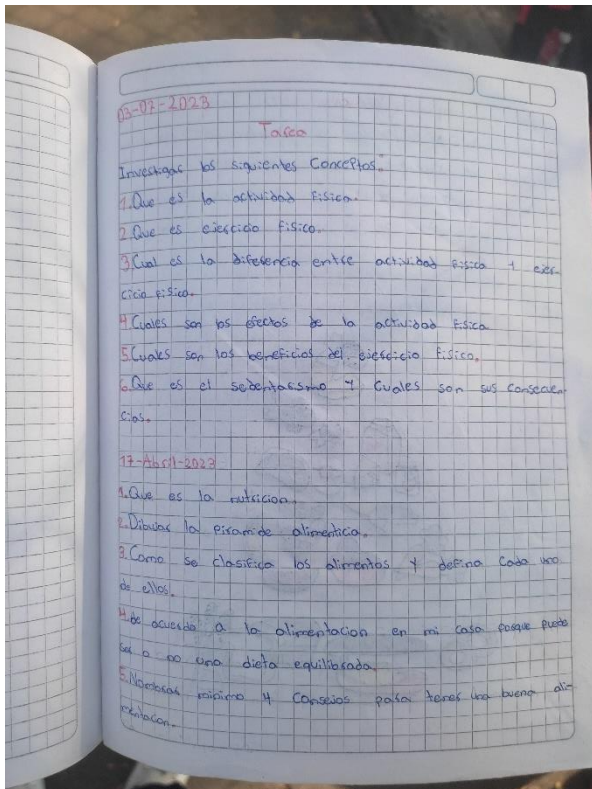 03-02-2023
Tarea
Investigar los siguientes Conceptos.
1. Que es la actividad Fisica.
2. Que es ejercicio Fisico.
3. Cual es la diferencia entre actividad Fisica y ejer-
cicio Fisico.
4. Cuales son los efectos de la actividad Fisica
5. Cuales son los beneficios del ejercicio Fisico.
6. Que es el sedentarismo y Cuales son sus consecuen
cias.
17-Abril-2023
1. Que es la nutricion.
2. Dibujar la piramide alimenticia.
3. Como se clasifica los alimentos y defina Cada uno
de ellos.
4. de acuerdo a la alimentacion en mi casa porque puede
ser o no una dieta equilibrada.
5. Nombrar minimo 4 Consejos para tener una buena ali-
mentacion.